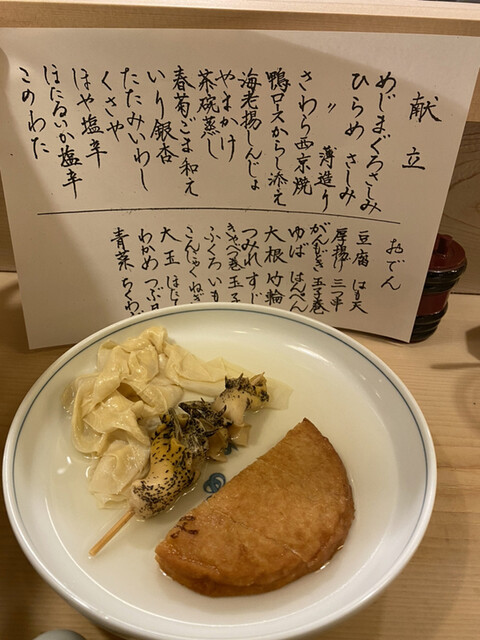 献立
めじまぐろさしみ
ひらめ さしみ
〃 薄造り
さわら西京焼
鴨ロースからし添え
海老揚しんじょ
やまかけ
茶碗蒸し
春菊ごま和え
いり銀杏
たたみいわし
くさや
ほや塩辛
ほたるいか塩辛
このわた
おでん
豆腐 はも天
厚揚 三つ串
がんもどき 玉子巻
ゆば はんぺん
大根 竹輪
つみれ すじ
きゃべつ巻 玉子
ふくろ いも
こんにゃく ねぎ
大玉
わかめ つぶ貝
青菜 ちくわぶ